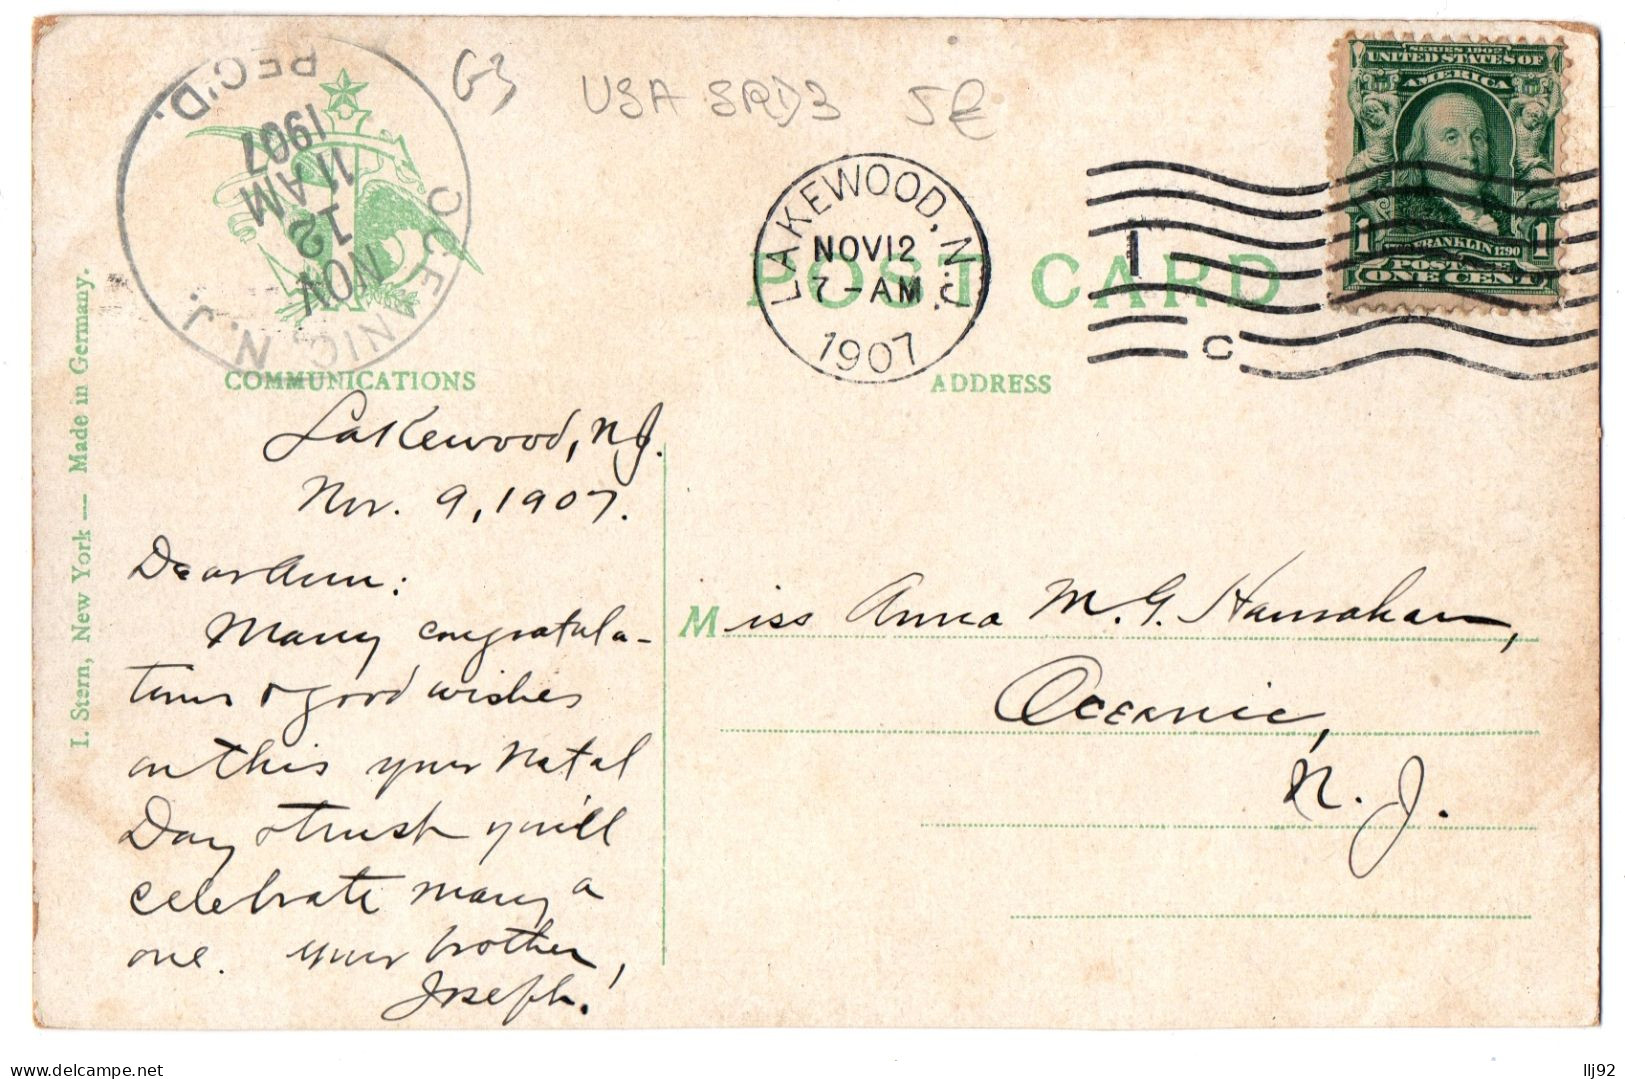 G3
USA SRD3 5€
OCEANIC, N.J.
NOV
12
11 AM
1907
REC'D.
LAKEWOOD, N.J.
NOV 12
7-AM
1907
1
C
SERIES 1902
UNITED STATES OF
AMERICA
FRANKLIN 1790
1 1
POSTAGE
ONE CENT
POST CARD
COMMUNICATIONS
ADDRESS
I. Stern, New York — Made in Germany.
Lakewood, N.J.
Nov. 9, 1907.
Dear Ann:
Many congratula-
tions & good wishes
on this your Natal
Day & trust you'll
celebrate many a
one. Your brother,
Joseph.
Miss Anna M. G. Hanrahan,
Oceanic,
N. J.
Delcampe.net
llj92